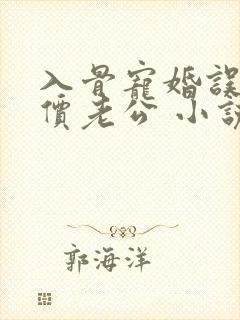 入骨寵婚誤
價老公 小說
郭海洋